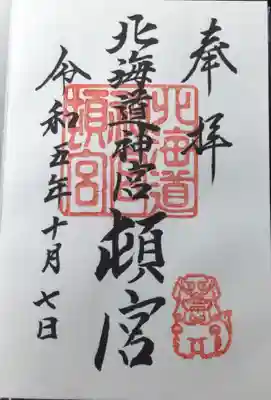 奉拝
北海道神宮頓宮
北海道
神宮
頓宮
令和五年十月七日